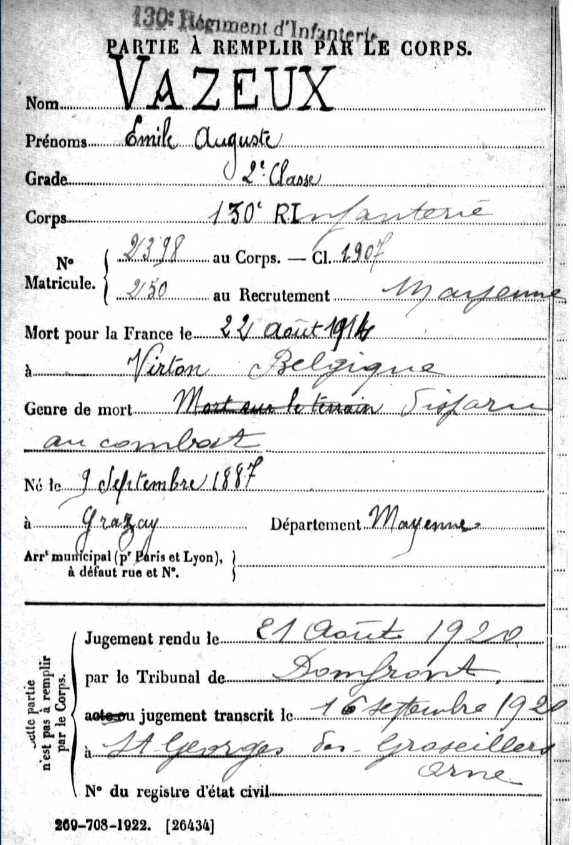 130e Régiment d'Infanterie
PARTIE À REMPLIR PAR LE CORPS.
Nom VAZEUX
Prénoms Emile Auguste
Grade 2e Classe
Corps 130e RInfanterie
N° Matricule. { 2398 au Corps. — Cl. 1907
250 au Recrutement Mayenne
Mort pour la France le 22 Août 1914
à Virton Belgique
Genre de mort Mort sur le terrain Disparu
au combat
Né le 9 Septembre 1887
à Grazay Département Mayenne
Arrt municipal (pr Paris et Lyon), à défaut rue et N°. }
Cette partie n'est pas à remplir par le Corps.
Jugement rendu le 21 Août 1920
par le Tribunal de Domfront.
acte ou jugement transcrit le 16 septembre 1920
à St Georges des Groseillers
Orne
N° du registre d'état civil
269-708-1922. [26434]